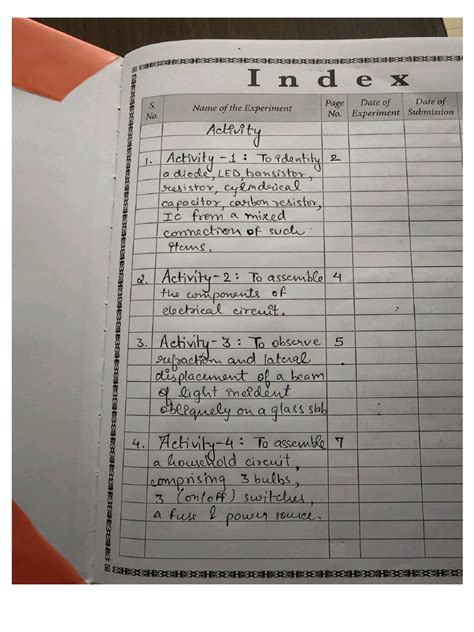 Index
S. No. Name of the Experiment Page No. Date of Experiment Date of Submission
Activity
1. Activity-1: To identify 2
a diode, LED, transistor,
resistor, cylindrical
capacitor, carbon resistor,
IC from a mixed
connection of such
items.
2. Activity-2: To assemble 4
the components of
electrical circuit.
3. Activity-3: To observe 5
refraction and lateral
displacement of a beam
of light incident
obliquely on a glass slab
4. Activity-4: To assemble 7
a household circuit,
comprising 3 bulbs,
3 (on/off) switches,
a fuse & power source.